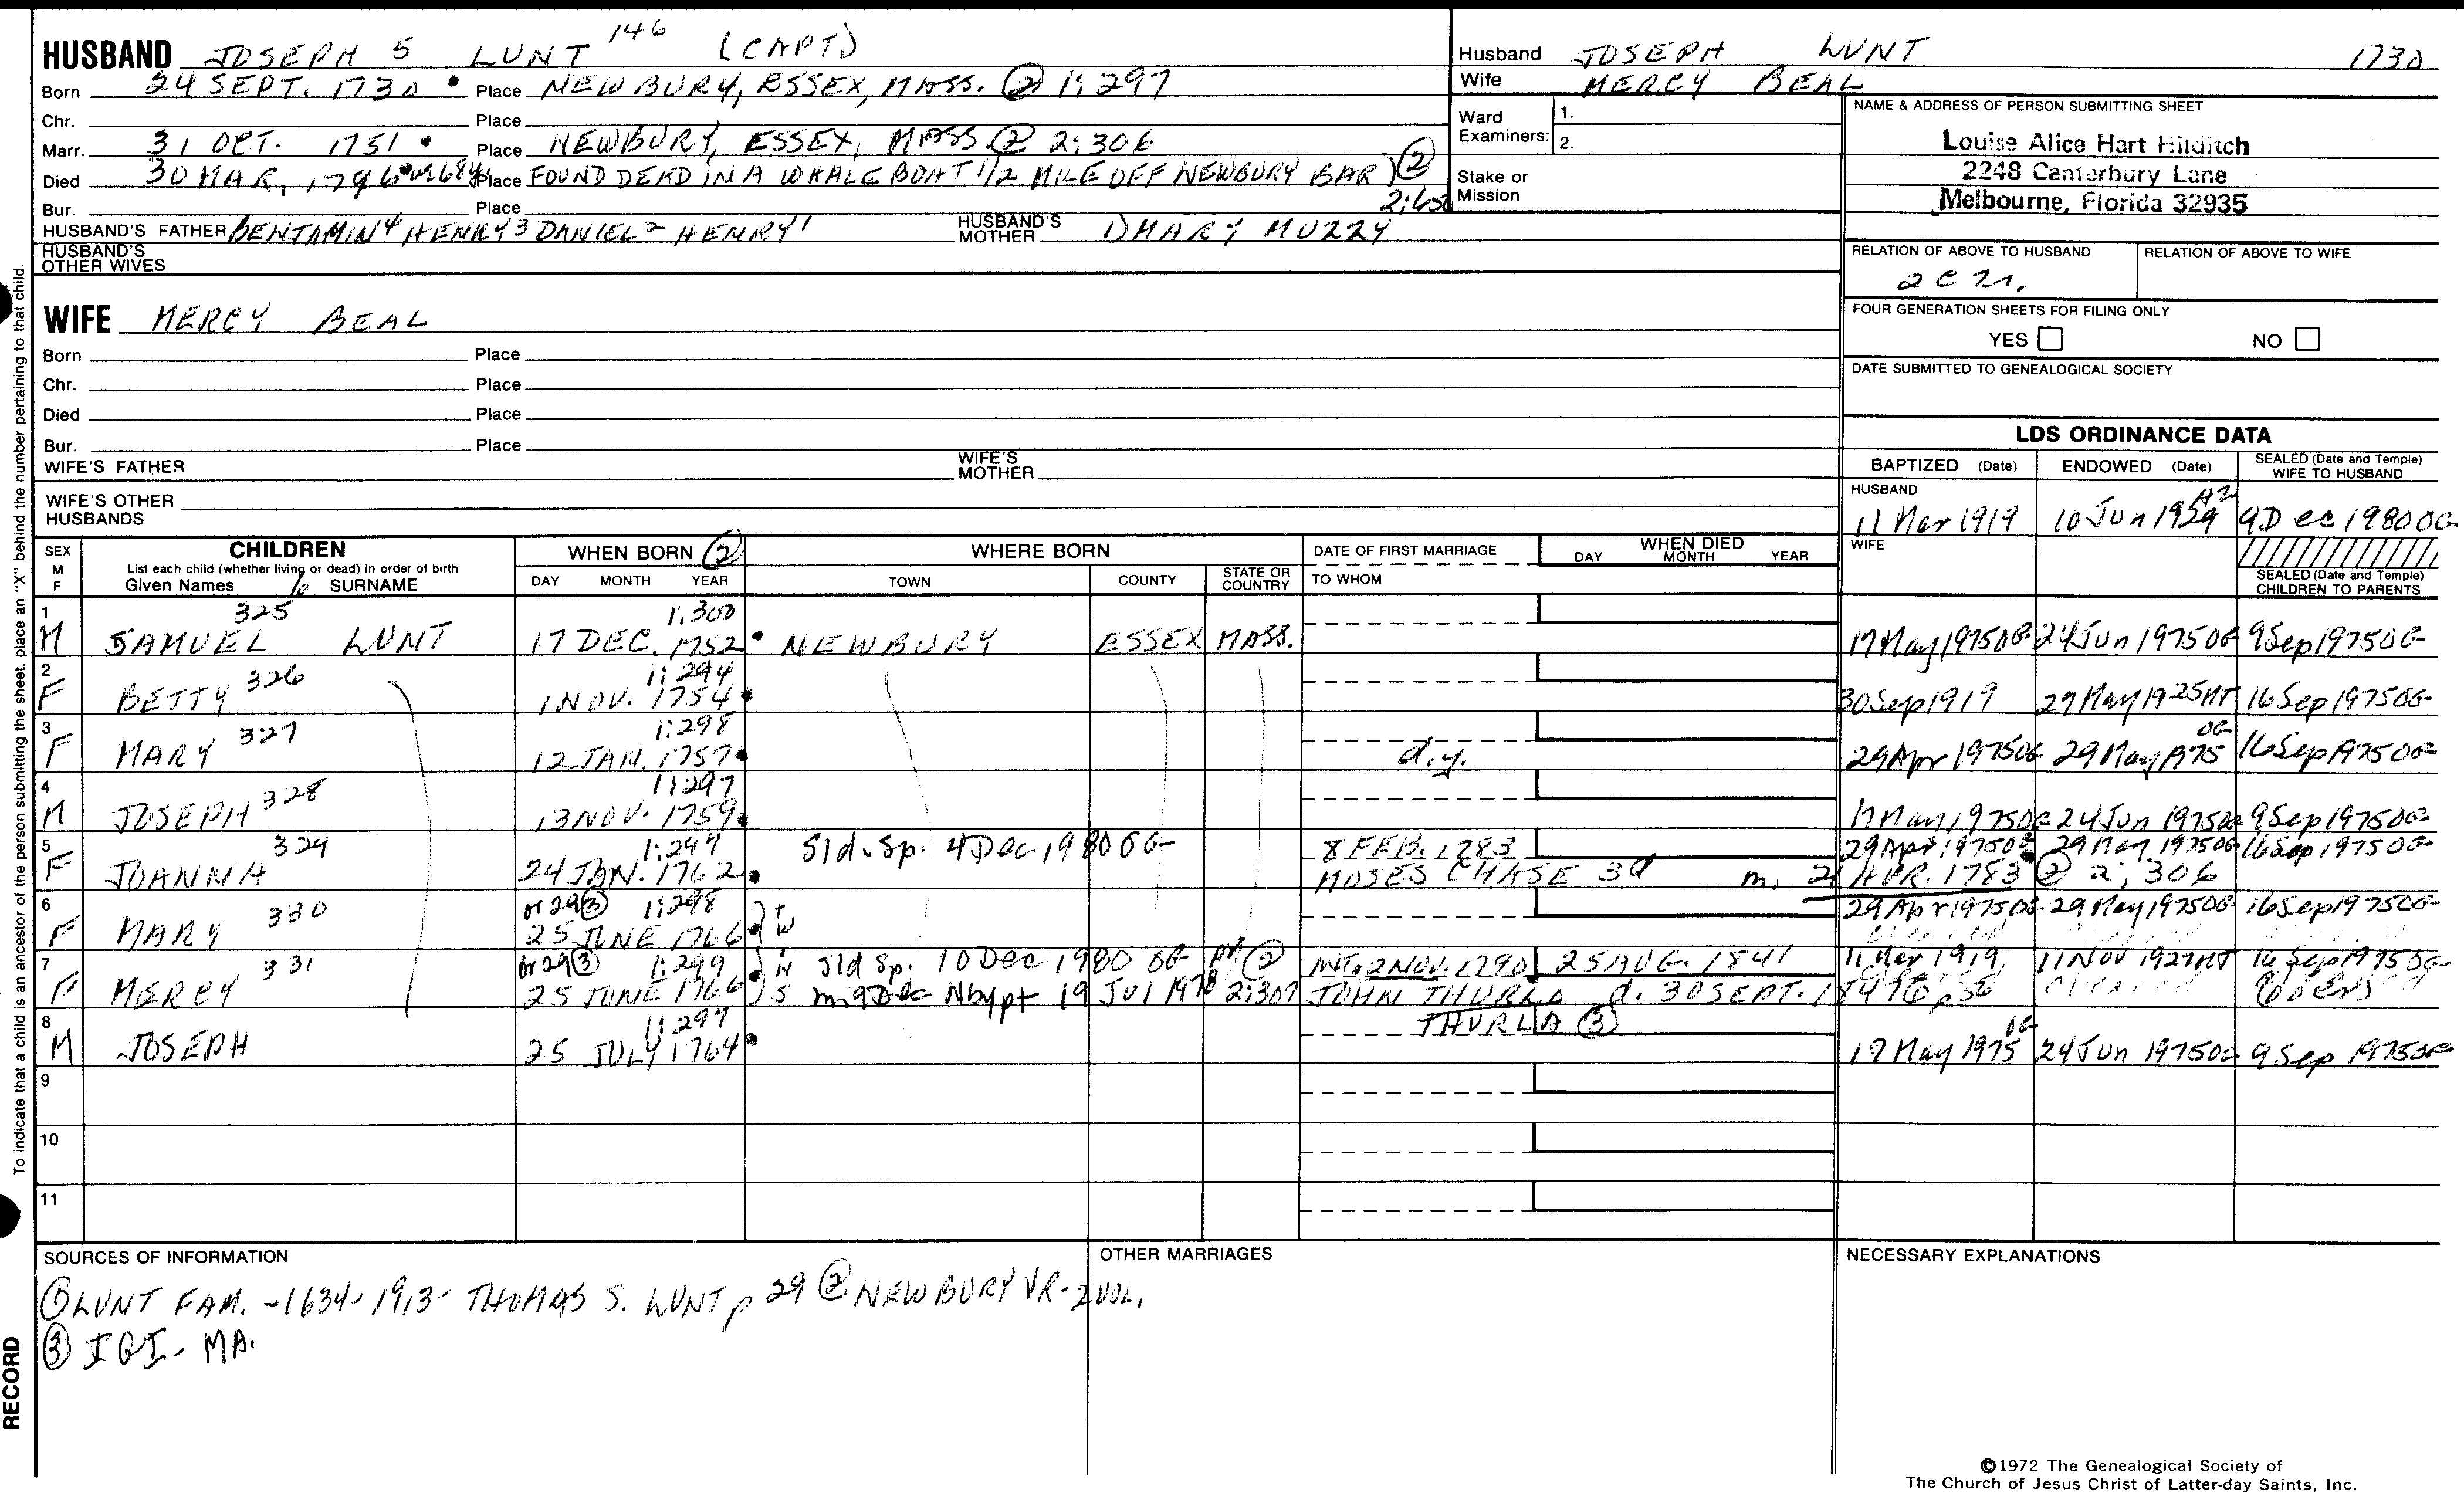 HUSBAND JOSEPH 5 LUNT 146 (CAPT)
Born 24 SEPT. 1730 • Place NEWBURY, ESSEX, MASS. ② 1:297
Chr. Place
Marr. 31 OCT. 1751 • Place NEWBURY, ESSEX, MASS ② 2:306
Died 30 MAR, 1796 Place FOUND DEAD IN A WHALE BOAT 1/2 MILE OFF NEWBURY BAR) ②
Bur. Place 2:650
HUSBAND'S FATHER BENJAMIN 4 HENRY 3 DANIEL 2 HENRY 1 HUSBAND'S MOTHER 1) MARY MUZZY
HUSBAND'S OTHER WIVES
WIFE MERCY BEAL
Born Place
Chr. Place
Died Place
Bur. Place
WIFE'S FATHER WIFE'S MOTHER
WIFE'S OTHER HUSBANDS
Husband JOSEPH LUNT 1730
Wife MERCY BEAL
Ward Examiners: 1.
2.
Stake or Mission
NAME & ADDRESS OF PERSON SUBMITTING SHEET
Louise Alice Hart Hilditch
2248 Canterbury Lane
Melbourne, Florida 32935
RELATION OF ABOVE TO HUSBAND RELATION OF ABOVE TO WIFE
FOUR GENERATION SHEETS FOR FILING ONLY
YES NO
DATE SUBMITTED TO GENEALOGICAL SOCIETY
LDS ORDINANCE DATA
BAPTIZED (Date) ENDOWED (Date) SEALED (Date and Temple) WIFE TO HUSBAND
HUSBAND
11 Mar 1919 10 Jun 1929 AZ 9 Dec 1980 OG
WIFE
SEALED (Date and Temple) CHILDREN TO PARENTS
SEX M F CHILDREN List each child (whether living or dead) in order of birth Given Names 6 SURNAME
WHEN BORN ② DAY MONTH YEAR
WHERE BORN TOWN COUNTY STATE OR COUNTRY
DATE OF FIRST MARRIAGE TO WHOM
WHEN DIED DAY MONTH YEAR
1 325 1:300
M SAMUEL LUNT 17 DEC. 1752 • NEWBURY ESSEX MASS. 17 May 1975 OG 24 Jun 1975 OG 9 Sep 1975 OG
2 326 1:294
F BETTY 1 NOV. 1754 • 30 Sep 1919 29 May 1925 AT 16 Sep 1975 OG
3 327 1:298
F MARY 12 JAN. 1757 • d.y. 29 Apr 1975 OG 29 May 1975 OG 16 Sep 1975 OG
4 328 1:297
M JOSEPH 13 NOV. 1759 • 17 May 1975 OG 24 Jun 1975 OG 9 Sep 1975 OG
5 329 1:297 Sld. Sp. 4 Dec 1980 OG 8 FEB. 1783 29 Apr 1975 OG 29 May 1975 OG 16 Sep 1975 OG
F JOANNA 24 JAN. 1762 • MOSES CHASE 3d m. 21 APR. 1783 ② 2:306
6 330 or 29 ③ 1:298
F MARY 25 JUNE 1766 • 29 Apr 1975 OG 29 May 1975 OG 16 Sep 1975 OG
7 331 or 29 ③ 1:299 Sld Sp. 10 Dec 1980 OG ② INT. 2 NOV. 1790 25 AUG. 1841 11 Mar 1919 11 Nov 1927 AT 16 Sep 1975 OG
F MERCY 25 JUNE 1766 m. 9 Dec Nbypt 19 Jul 1978 2:307 JOHN THURLO d. 30 SEPT.
THURLA ③
8 1:297
M JOSEPH 25 JULY 1764 • 17 May 1975 OG 24 Jun 1975 OG 9 Sep 1975 OG
9
10
11
SOURCES OF INFORMATION
① LUNT FAM. - 1634-1913 - THOMAS S. LUNT p 29 ② NEWBURY VR - 2 VOL.
③ IGI - MA.
OTHER MARRIAGES
NECESSARY EXPLANATIONS
To indicate that a child is an ancestor of the person submitting the sheet, place an "X" behind the number pertaining to that child.
RECORD
©1972 The Genealogical Society of
The Church of Jesus Christ of Latter-day Saints, Inc.